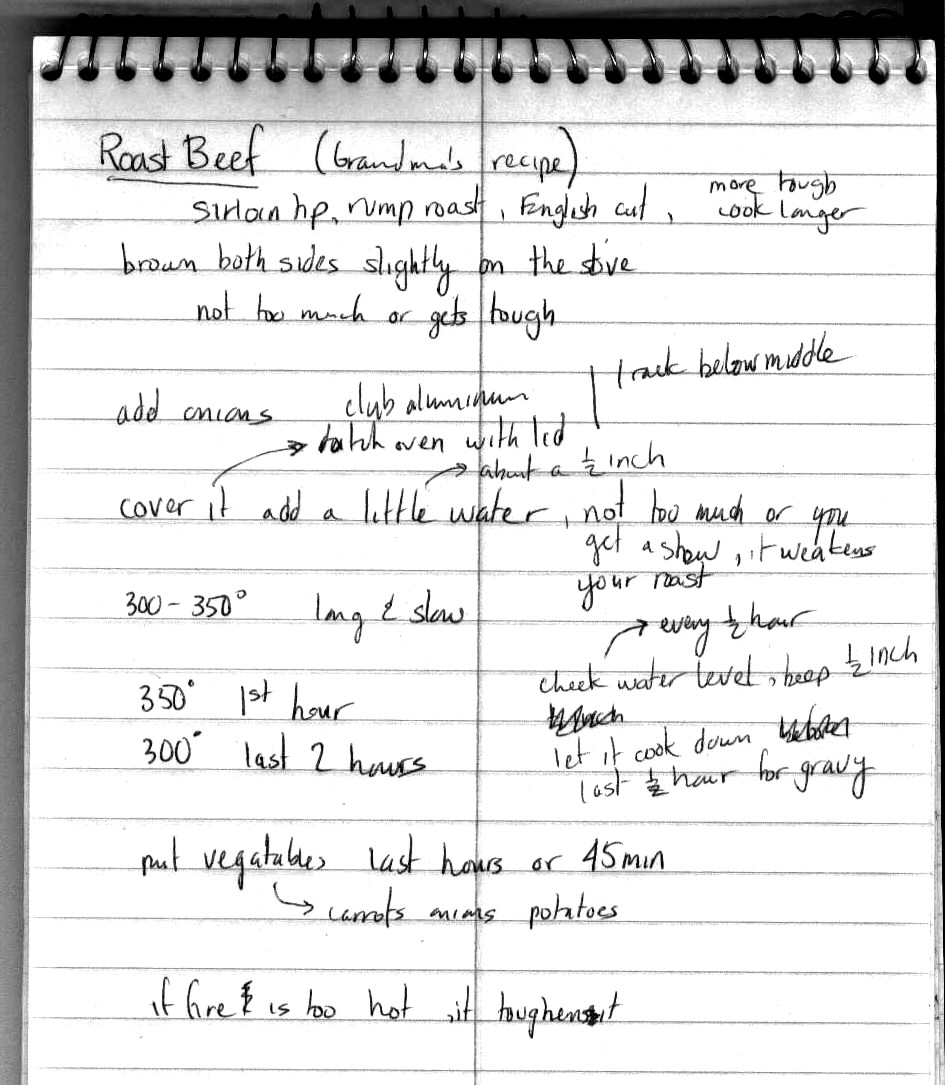 Roast Beef (Grandma's recipe)
more tough
sirloin tip, rump roast, English cut, cook longer
brown both sides slightly on the stove
not too much or gets tough
1 rack below middle
add onions club aluminum
dutch oven with lid
about a ½ inch
cover it add a little water, not too much or you
get a stew, it weakens
your roast
300 - 350° long & slow
every ½ hour
check water level, keep ½ inch
350° 1st hour
let it cook down
300° last 2 hours
last ½ hour for gravy
put vegatables last hours or 45 min
carrots onions potatoes
if fire is too hot, it toughens it